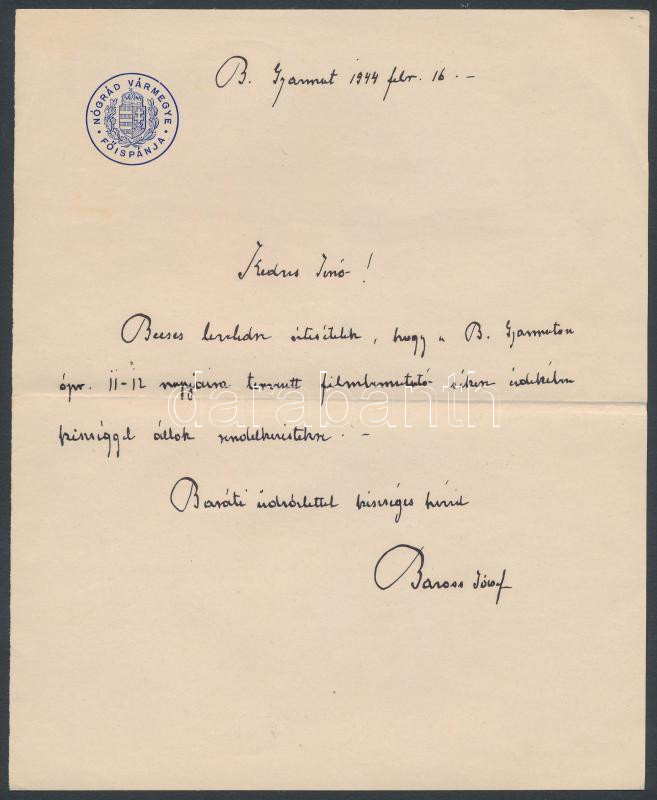 B. Gyarmat 1944 febr. 16. –
NÓGRÁD VÁRMEGYE
FŐISPÁNJA
Kedves Jenő!
Becses leveledre értesítelek, hogy a B. Gyarmaton
ápr. 11-12 napjaira tervezett filmbemutató sikere érdekében
készséggel állok rendelkezésetekre. –
darabanth
Baráti üdvözlettel készséges híved
Baross József